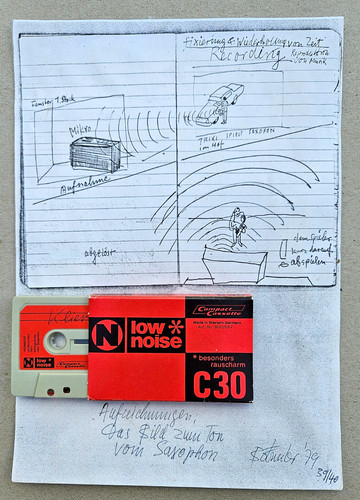 Fixierung & Wiederholung von Zeit
Recording
Reproduktion
von Musik
Fenster 1. Stock
Mikro
Aufnahme
TRIXL SPIELT SAXOFON
im Hof
abgelöst
dem Spieler
kurz darauf
abspielen
N low noise
Compact Cassette
Made in Western Germany
* besonders
rauscharm
C30
low noise
Aufzeichnungen,
Das Bild zum Ton
vom Saxophon
'79
39/40